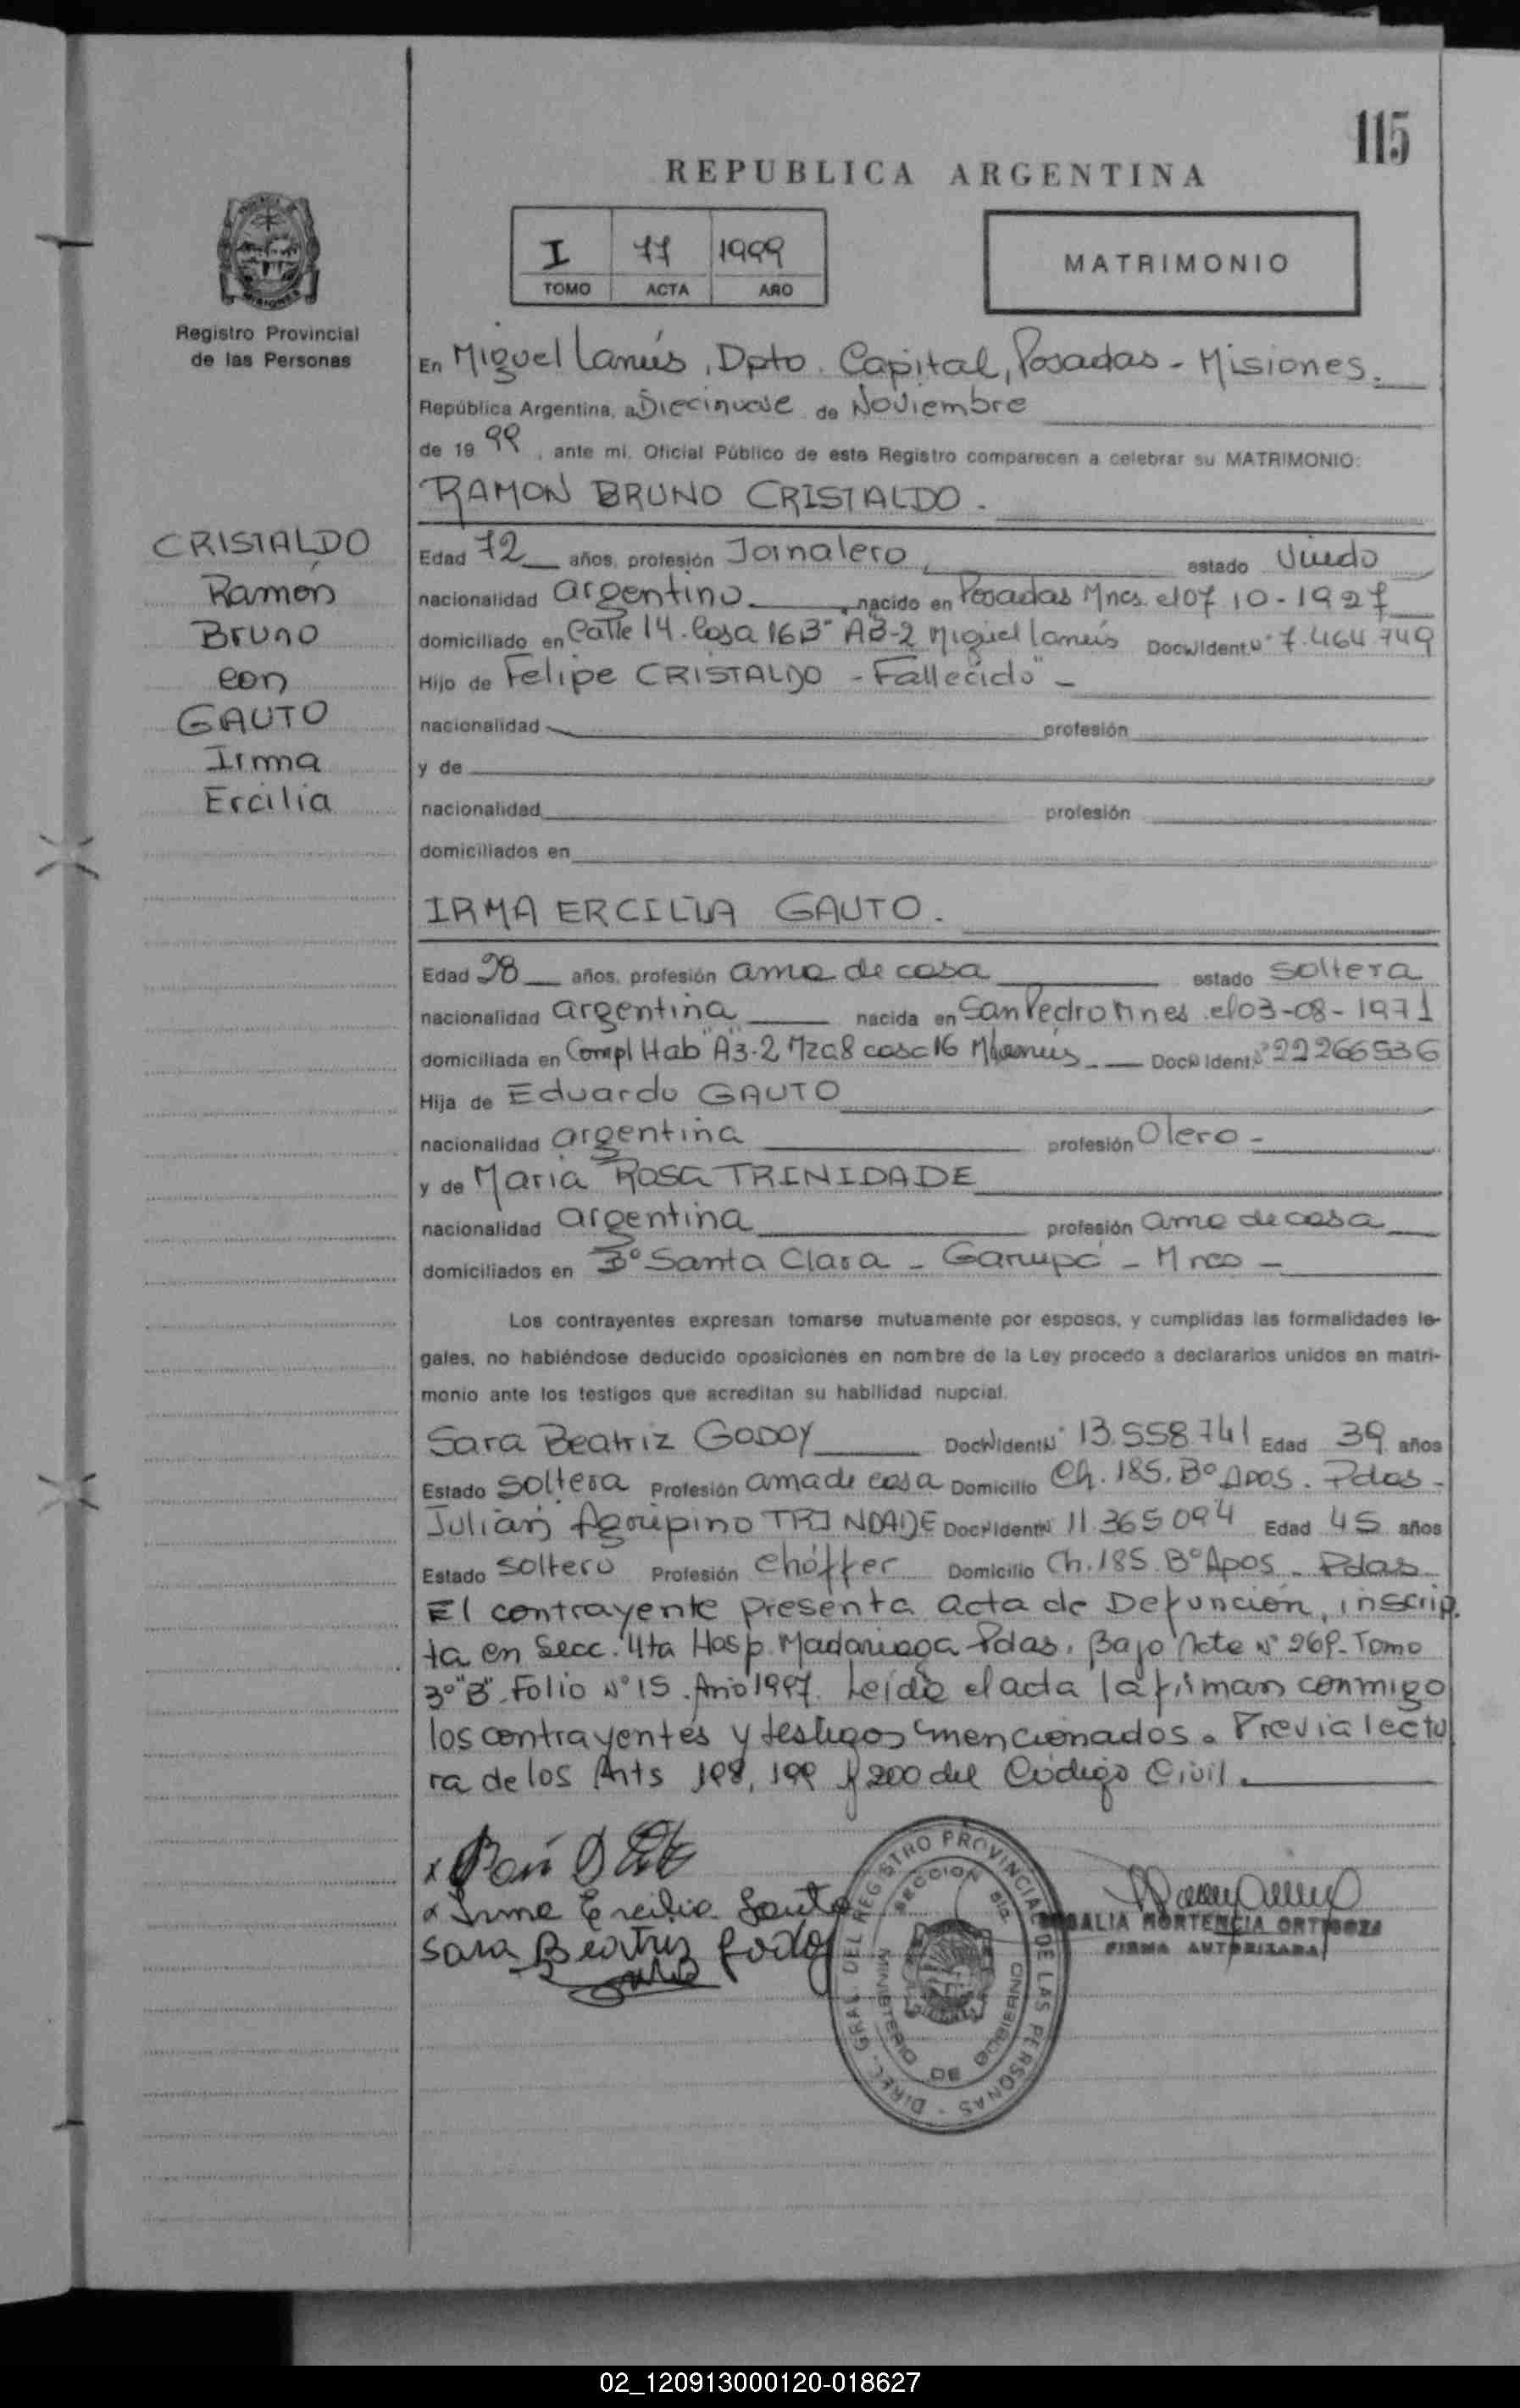 115
REPUBLICA ARGENTINA
I 77 1999
TOMO ACTA AÑO
MATRIMONIO
Registro Provincial
de las Personas
En Miguel Lanús, Dpto. Capital, Posadas - Misiones.
República Argentina, a Diecinueve de Noviembre
de 19 99, ante mi, Oficial Público de este Registro comparecen a celebrar su MATRIMONIO:
RAMON BRUNO CRISTALDO.
CRISTALDO
Ramón
Bruno
con
GAUTO
Irma
Ercilia
Edad 72 años, profesión Jornalero, estado Viudo
nacionalidad argentino, nacido en Posadas Mnes. el 07-10-1927
domiciliado en Calle 14. Casa 16 B° A3-2 Miguel Lanús Doc. Ident. N° 7.464.749
Hijo de Felipe CRISTALDO - Fallecido" -
nacionalidad profesión
y de
nacionalidad profesión
domiciliados en
IRMA ERCILIA GAUTO.
Edad 28 años, profesión ama de casa estado soltera
nacionalidad argentina nacida en San Pedro Mnes. el 03-08-1971
domiciliada en Compl Hab "A3-2 Mza 8 casa 16 M Lanús Doc. Ident. N° 22266536
Hija de Eduardo GAUTO
nacionalidad argentina profesión Olero -
y de Maria Rosa TRINIDADE
nacionalidad argentina profesión ama de casa
domiciliados en B° Santa Clara - Garupá - Mnes -
Los contrayentes expresan tomarse mutuamente por esposos, y cumplidas las formalidades le-
gales, no habiéndose deducido oposiciones en nombre de la Ley procedo a declararlos unidos en matri-
monio ante los testigos que acreditan su habilidad nupcial.
Sara Beatriz GODOY Doc. Ident. N° 13.558.741 Edad 39 años
Estado soltera Profesión ama de casa Domicilio Ch. 185. B° Apos. Pdas -
Julián Agripino TRINDADE Doc. Ident. N° 11.365.094 Edad 45 años
Estado soltero Profesión chóffer Domicilio Ch. 185. B° Apos - Pdas
El contrayente presenta acta de Defunción, inscrip.
ta en Secc. 4ta Hosp. Madariaga Pdas. Bajo Acta N° 269. Tomo
3° "B". Folio N° 15. Año 1997. Leída el acta la firman conmigo
los contrayentes y testigos mencionados. Previa lectu
ra de los Arts 198, 199 y 200 del Código Civil.
x
x Irma Ercilia Gauto
Sara Beatriz Godoy
DIREC. GRAL. DEL REGISTRO PROVINCIAL DE LAS PERSONAS
SECCION
MINISTERIO DE GOBIERNO
ROSALIA HORTENCIA ORTIGOZA
FIRMA AUTORIZADA
02_120913000120-018627